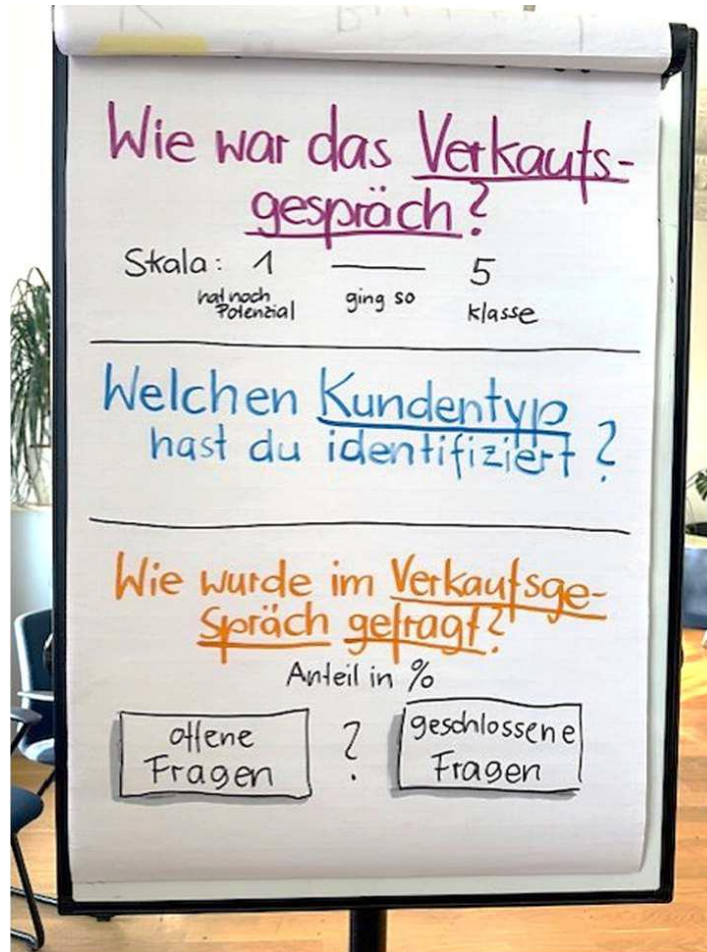 Wie war das Verkaufs-
gespräch?
Skala: 1 —— 5
hat noch
Potenzial
ging so
klasse
Welchen Kundentyp
hast du identifiziert?
Wie wurde im Verkaufsge-
spräch gefragt?
Anteil in %
offene
Fragen
?
geschlossene
Fragen